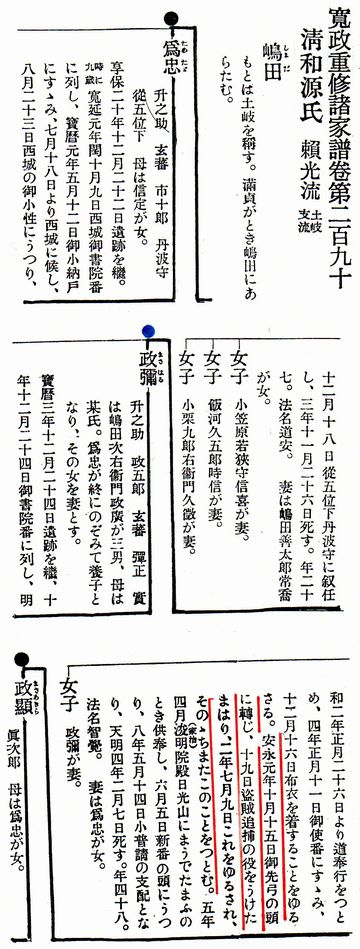 寛政重修諸家譜卷第二百九十
淸和源氏 賴光流 土岐支流
嶋田 しまだ
もとは土岐を稱す。滿貞がとき嶋田にあ
らたむ。
爲忠 ためたゞ
升之助 玄蕃 市十郎 丹波守
從五位下 母は信定が女。
享保二十年十二月二十二日遺跡を繼。
時に九歲 寬延元年閏十月九日西城御書院番
に列し、寶曆元年五月十二日御小納戶
にすゝみ、七月十八日より西城に候し、
八月二十三日西城の御小性にうつり、
十二月十八日從五位下丹波守に敍任
し、三年十一月二十六日死す。年二十
七。法名道安。 妻は嶋田善太郎常喬
が女。
女子 小笠原若狹守信喜が妻。
女子 飯河久五郎時信が妻。
女子 小栗九郎右衞門久徵が妻。
政彌 まさはる
升之助 政五郎 玄蕃 彈正 實
は嶋田次右衞門政廣が三男、母は
某氏。爲忠が終にのぞみて養子と
なり、その女を妻とす。
寶曆三年十二月二十四日遺跡を繼、十
年十二月二十四日御書院番に列し、明
和二年正月二十六日より道奉行をつと
め、四年正月十一日御使番にすゝみ、
十二月十六日布衣を着することをゆる
さる。安永元年十月十五日御先弓の頭
に轉じ、十九日盜賊追捕の役をうけた
まはり、二年七月九日これをゆるされ、
そのゝちまたこのことをつとむ。五年
四月浚明院殿(家治)日光山にまうでたまふの
とき供奉し、六月五日新番の頭にうつ
り、八年五月十四日小普請の支配とな
り、天明四年二月七日死す。年四十八。
法名智覺。 妻は爲忠が女。
女子 政彌が妻。
政顯 まさあきら
眞次郎 母は爲忠が女。